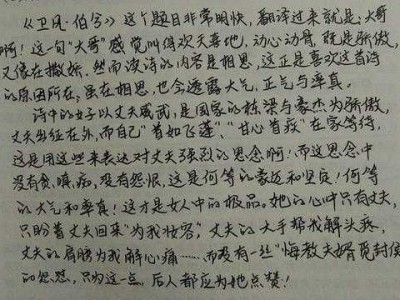 《卫风·伯兮》这个题目非常明快，翻译过来就是：大哥
啊！这一句"大哥"感觉叫得欢天喜地，动心动骨，既是骄傲，
又像在撒娇。然而该诗的内容是相思，这正是喜欢这首诗
的原因所在，虽在相思，也今透露大气、正气与率真。
诗中的女子以丈夫威武，是国家的栋梁与豪杰为骄傲，
丈夫出征在外，而自己"首如飞蓬"、"甘心首疾"在家等待，
这是用这些来表达对丈夫强烈的思念啊！而这思念中
没有贪、嗔、痴，没有怨恨，这是何等的豪迈和坚定！何等
的大气和率真！这才是女人中的极品。她的心里只有丈夫，
只盼着丈夫回来"为我妆容"，丈夫的大手帮我解头疼，
丈夫的肩膀为我解心痛……而没有一丝"悔教夫婿觅封侯"
的怨怼，只为这一点，后人都应为她点赞！